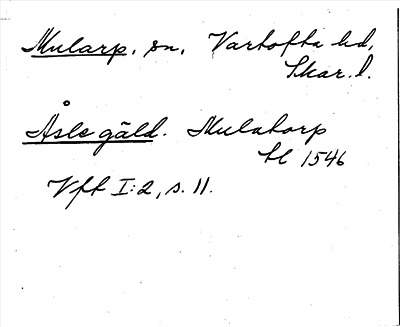 Mularp, sn, Vartofta hd,
Skar. l.
Åsle gäld. Mulatorp
tl 1546
Vft I:2, s. 11.